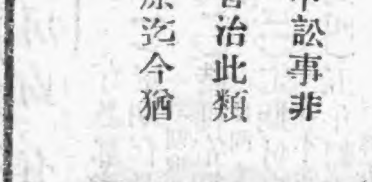 訟事非
治此類
迄今猶